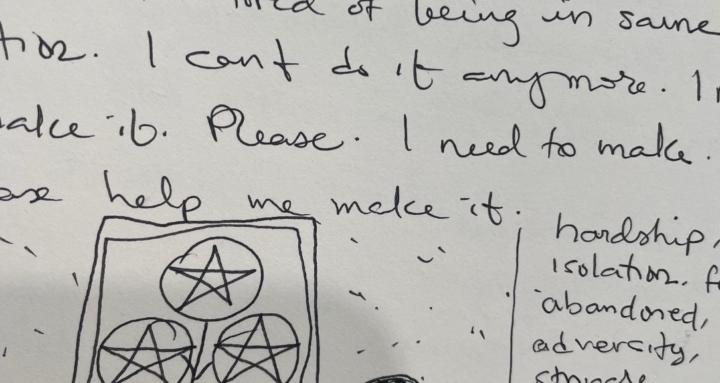 of being in same
I can't do it anymore. I
make it. Please. I need to make
help me make it.
hardship,
isolation.
abandoned,
adversity,
struggle